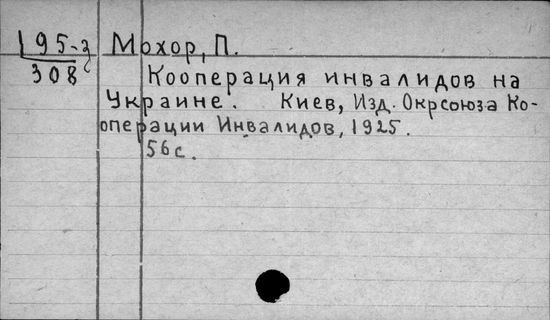 195-3 Мохор, П.
308 Кооперация инвалидов на
Украине. Киев, Изд. Окрсоюза Ко-
операции Инвалидов, 1925.
56с.